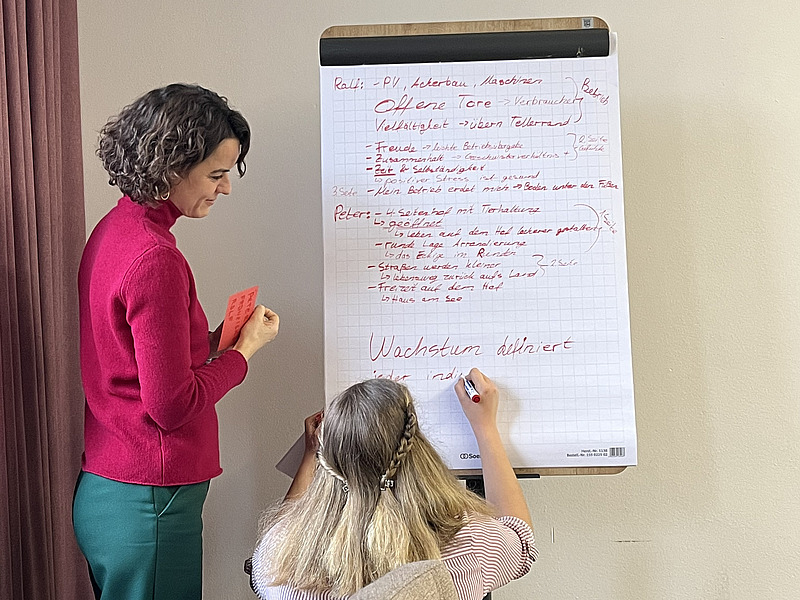 Ralf: - PV, Ackerbau, Maschinen
Offene Tore -> Verbraucher
Vielfältigkeit -> übern Tellerrand
Betrieb
- Freude -> leichte Betriebsübergabe
- Zusammenhalt -> Geschwisterverhältnis
2. Seite
- Zeit & Selbständigkeit
↳ positiver Stress ist gesund
3. Seite - Mein Betrieb erdet mich -> Boden unter den Füßen
Peter: - 4-Seitenhof mit Tierhaltung
↳ geöffnet
↳ Leben auf dem Hof lockerer gestalten
1. Seite
- runde Lage Arrondierung
↳ das Eckige im Runden
- Straßen werden kleiner
↳ Lebensweg zurück aufs Land
2. Seite
- Freizeit auf dem Hof
↳ Haus am See
Wachstum definiert
jeder indi
Bestell-Nr.